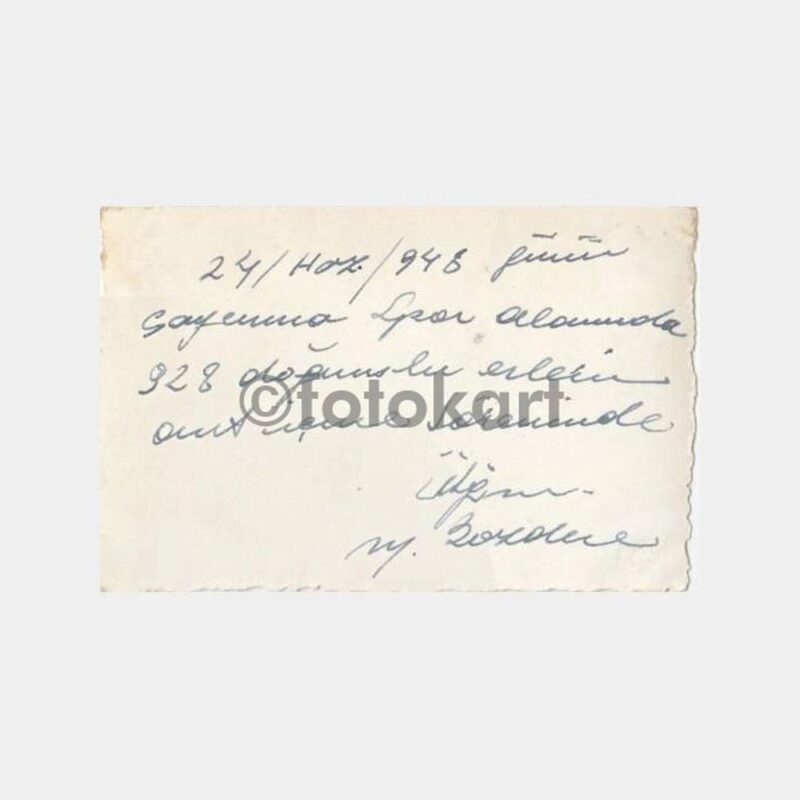 24/Haz./948 günü
Sarıcuma Spor alanında
928 doğumlu erlerin
©fotokart
ant içme töreninde
Ütğm.
M. Bozdere